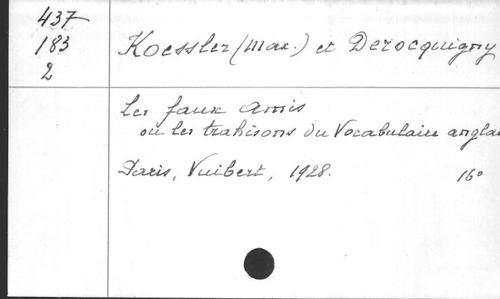 437
183
2
Koessler (Max.) et Derocquigny
Les faux amis
ou les trahisons du Vocabulaire anglai
Paris, Vuibert, 1928. 16°